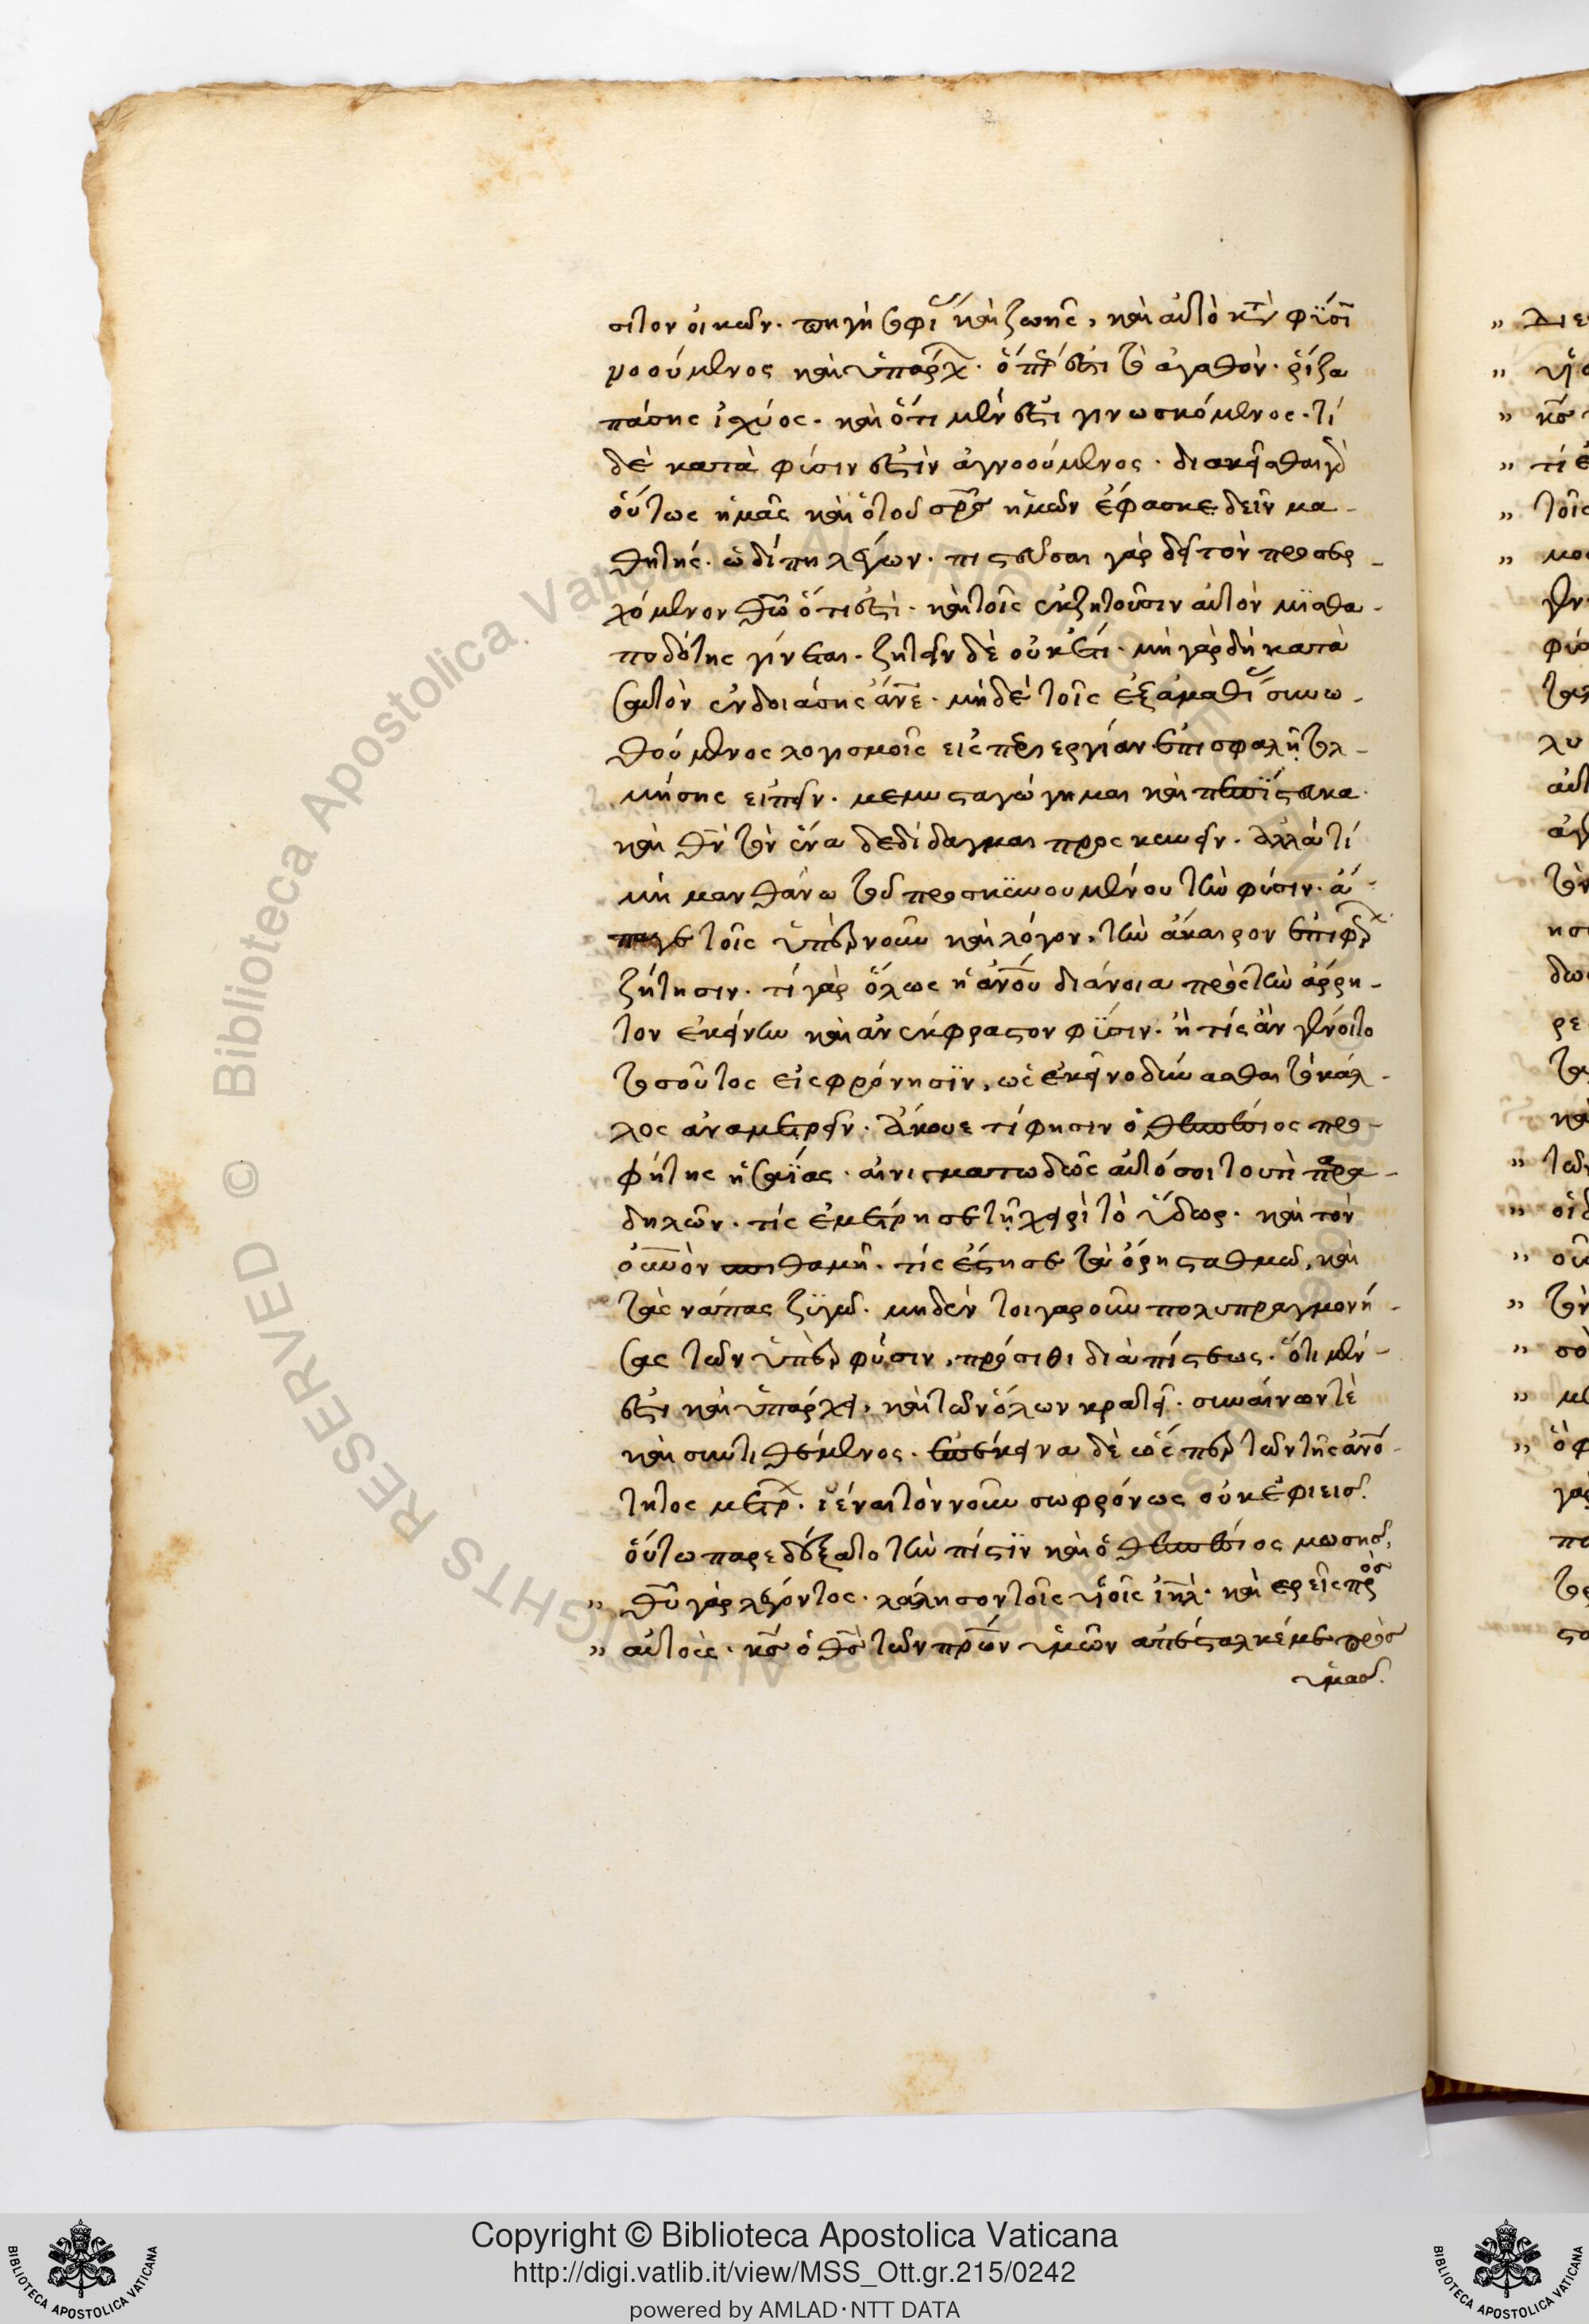 σιτον οἰκῶν. πηγὴ σοφί καὶ ζωῆς, καὶ αὐτὸ κτ̀ φϋσι
νοούμενος καὶ ὑπάρχ. ὅπερ ἐστὶ τὸ ἀγαθόν. ῥίζα
πάσης ἰχύος. καὶ ὅτι μέν ἐστι γινωσκόμενος. τί
δὲ κατὰ φύσιν ἐστὶν ἀγνοούμενος. διακεῖσθαι γὸ
οὕτως ἡμᾶς καὶ ὁ τοῦ σρ̅σ ἡμῶν ἔφασκε δεῖν μα-
θητής. ὡδίπη λέγων. πιστεῦσαι γὰρ δεῖ τὸν προσερ-
χόμενον θῶ ὅτι ἐστὶ. καὶ τοῖς ἐκζητοῦσιν αὐτὸν μϊσθα-
ποδότης γίνεται. ζητεῖν δὲ οὐκέτι. μὴ γὰρ δὴ κατὰ
σαυτὸν ἐνδοιάσης ἄνε. μὴ δὲ τοῖς ἐξ ἀμαθί συνω-
θούμενος λογισμοῖς εἰς περιεργίαν ἐπισφαλῆ τολ-
μήσης εἰπεῖν. μεμυσταγώγημαι καὶ πεπίστευκα
καὶ θν̀ τὸν ἕνα δεδίδαγμαι προσκυνεῖν. ἀλλὰ τί
μὴ μανθάνω τοῦ προσκϋνουμένου τὴν φύσιν. ἄ-
παγε τοῖς ὑπὲρ νοῦν καὶ λόγον, τὴν ἄκαιρον ἐπιφρ
ζήτησιν. τί γὰρ ὅλως ἡ ἀνου διάνοια πρὸς τὴν ἄρρη-
τον ἐκείνην καὶ ἀνέκφραστον φϋσιν. ἢ τίς ἂν γένοιτο
τοσοῦτος εἰς φρόνησϊν, ὡς ἐκεῖνο δύνασθαι τὸ κάλ-
λος ἀναμετρεῖν. ἄκουε τί φησιν ὁ θεσπέσιος προ-
φήτης ἡσαΐας. αἰνιγματωδῶς αὐτό σοι τουτὶ παρα-
δηλῶν. τίς ἐμέτρησε τῆ χειρὶ τὸ ὕδωρ. καὶ τὸν
οὐνὸν σπιθαμῆ. τίς ἔστησε τὰ ὄρη σταθμῶ, καὶ
τὰς νάπας ζϋγῶ. μηδὲν τοιγαροῦν πολυπραγμονή-
σας τῶν ὑπὲρ φύσιν, πρόσιθι διὰ πίστεως. ὅτι μέν
ἐστι καὶ ὑπάρχει, καὶ τῶν ὅλων κρατεῖ. συναινῶν τὲ
καὶ συντιθέμενος. ἐπέκεινα δὲ ὥσπερ τῶν τῆς ἀνο-
τητος μέτρ. ἰέναι τὸν νοῦν σωφρόνως οὐκ ἐφιείσ.
οὕτω παρεδέξατο τὴν πίστϊν καὶ ὁ θεσπέσιος μωσῆς,
„ θυ γὰρ λέγοντος. λάλησον τοῖς υἱοῖς ιηλ. καὶ ἐρεῖς πρὸσ
„ αὐτοὺς. κσ ὁ θσ τῶν πρων ὑμῶν ἀπέσταλκέ με πρὸσ
ὑμᾶσ.